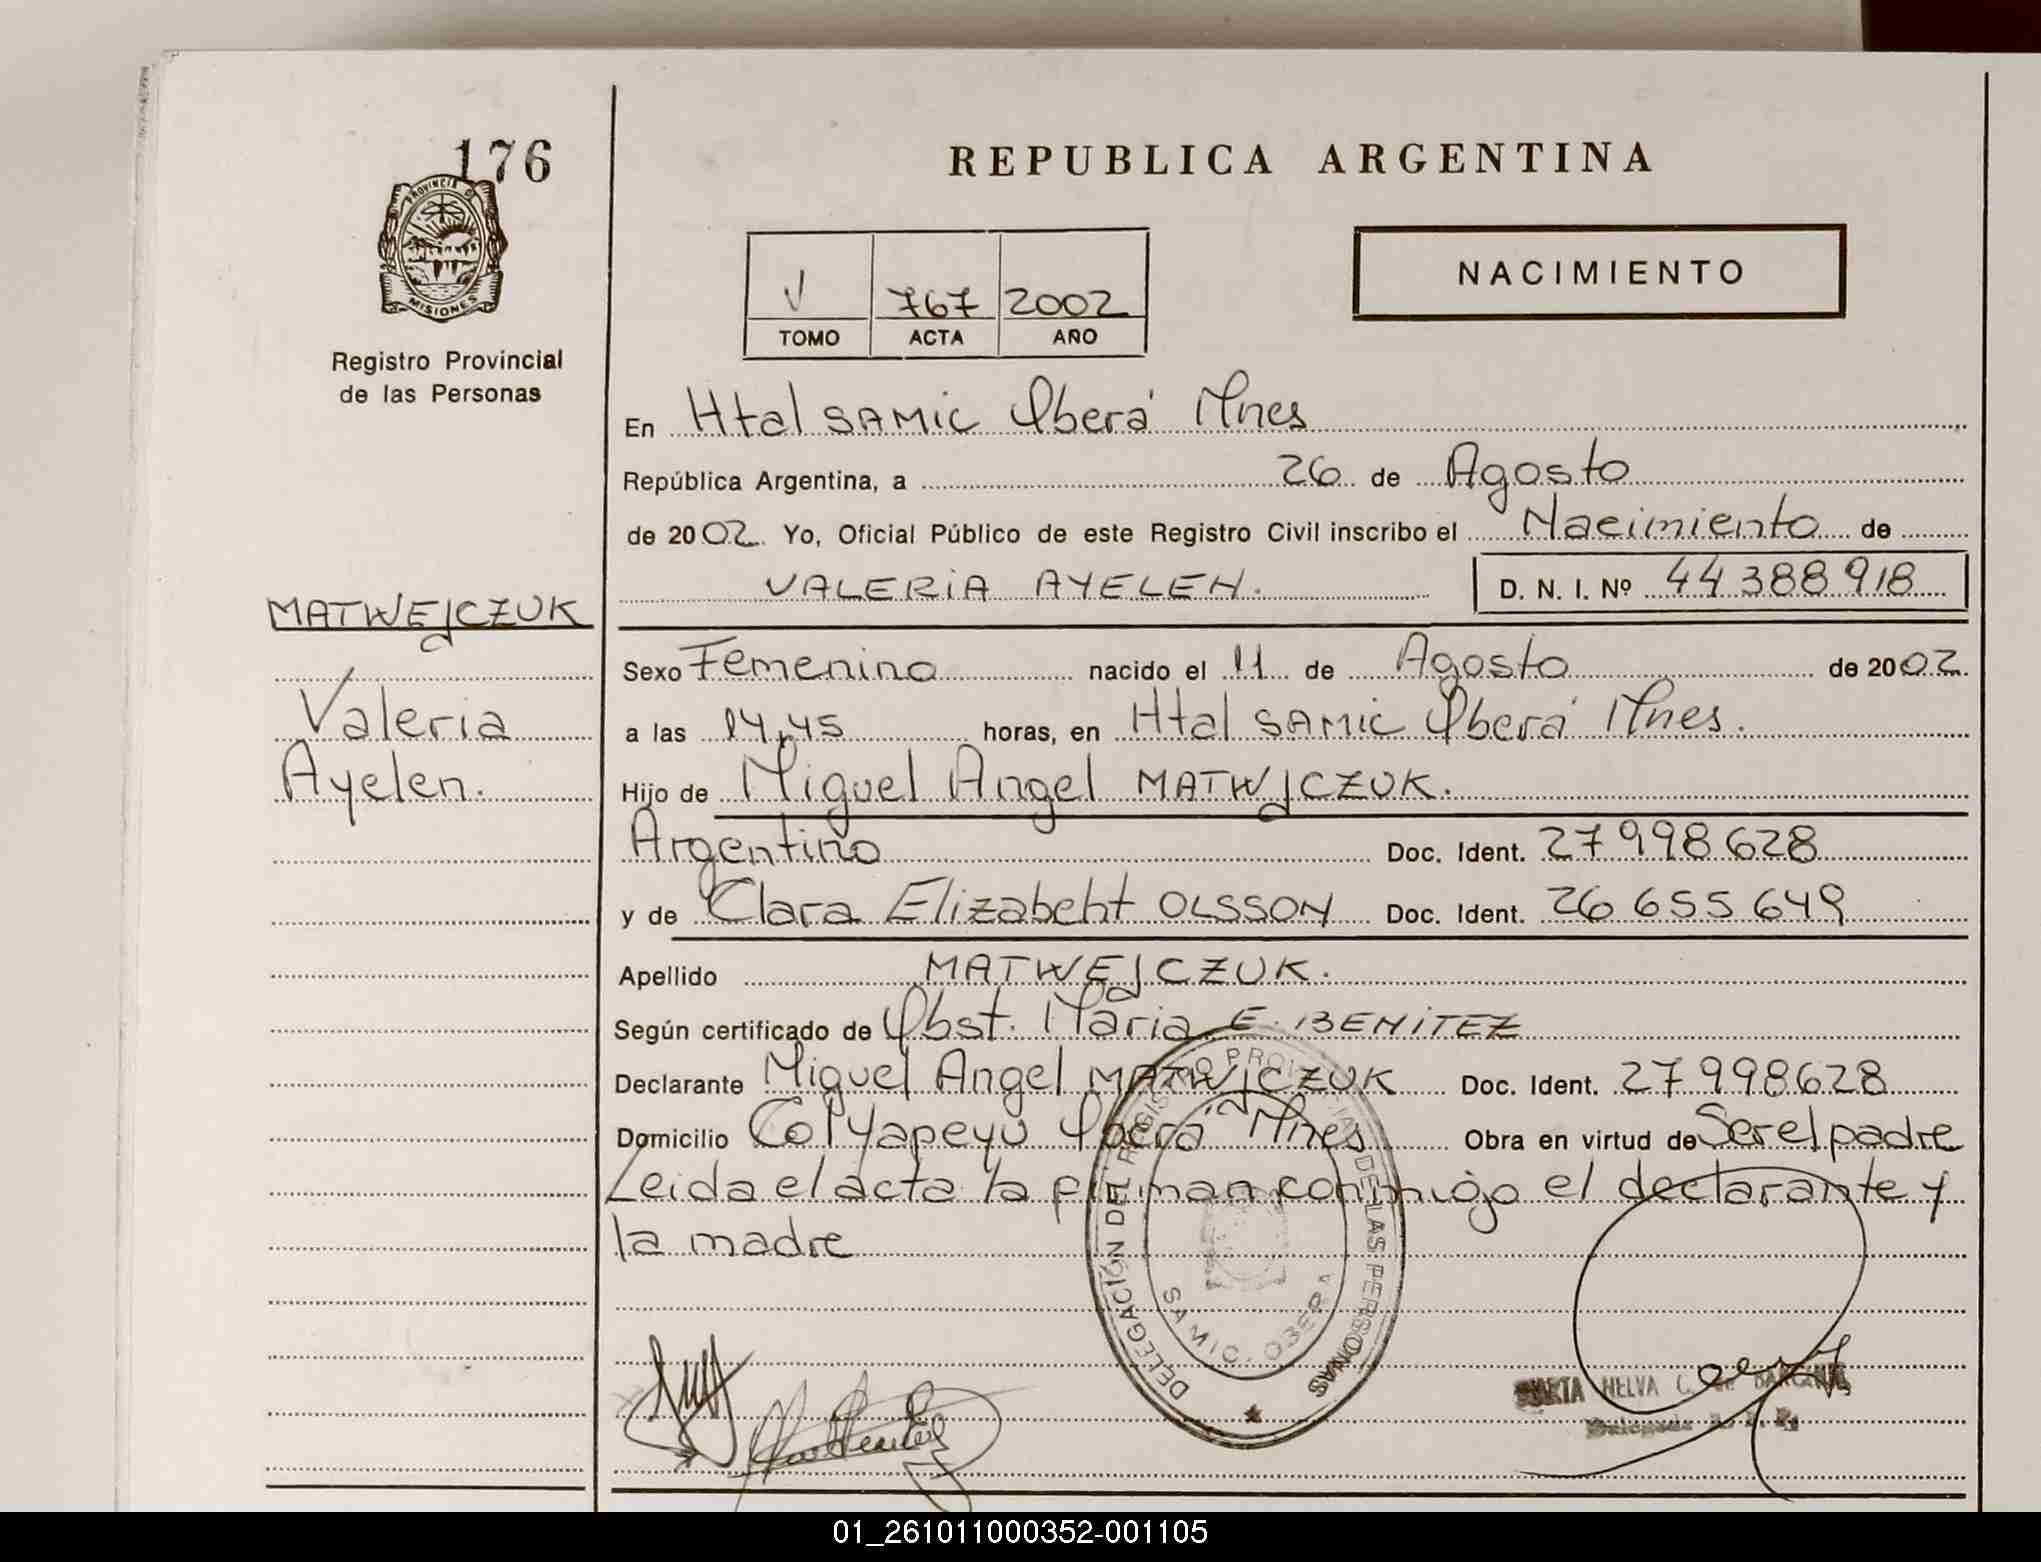 176
PROVINCIA DE
MISIONES
Registro Provincial
de las Personas
MATWEJCZUK
Valeria
Ayelen.
REPUBLICA ARGENTINA
NACIMIENTO
V 767 2002
TOMO ACTA AÑO
En Htal SAMIC Oberá Mnes
República Argentina, a 26 de Agosto
de 2002. Yo, Oficial Público de este Registro Civil inscribo el Nacimiento de
VALERIA AYELEN. D. N. I. Nº 44388918
Sexo Femenino nacido el 11 de Agosto de 2002.
a las 14,45 horas, en Htal SAMIC Oberá Mnes.
Hijo de Miguel Angel MATWJCZUK.
Argentino Doc. Ident. 27998628
y de Clara Elizabeht OLSSON Doc. Ident. 26655649
Apellido MATWEJCZUK.
Según certificado de Obst. Maria E. BENITEZ
Declarante Miguel Angel MATWJCZUK Doc. Ident. 27998628
Domicilio Col Yapeyú Oberá Mnes Obra en virtud de Ser el padre
Leida el acta la firman conmigo el declarante y
la madre
DELEGACIÓN DEL REGISTRO PROVINCIAL DE LAS PERSONAS
SAMIC. OBERA
MARTA NELVA C. de
Delegada R. P. P.
01_261011000352-001105